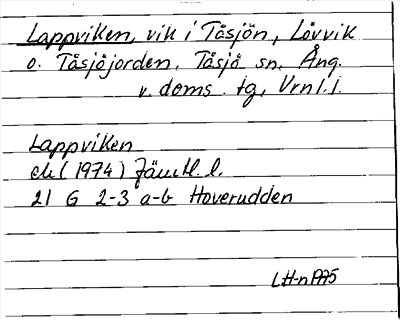 Lappviken, vik i Tåsjön, Lövvik
o. Tåsjöjorden, Tåsjö sn. Ång.
v. doms. tg, Vrnl. l.
Lappviken
ek (1974) Jämtl. l.
21 G 2-3 a-b Hoverudden
LH-n 1975